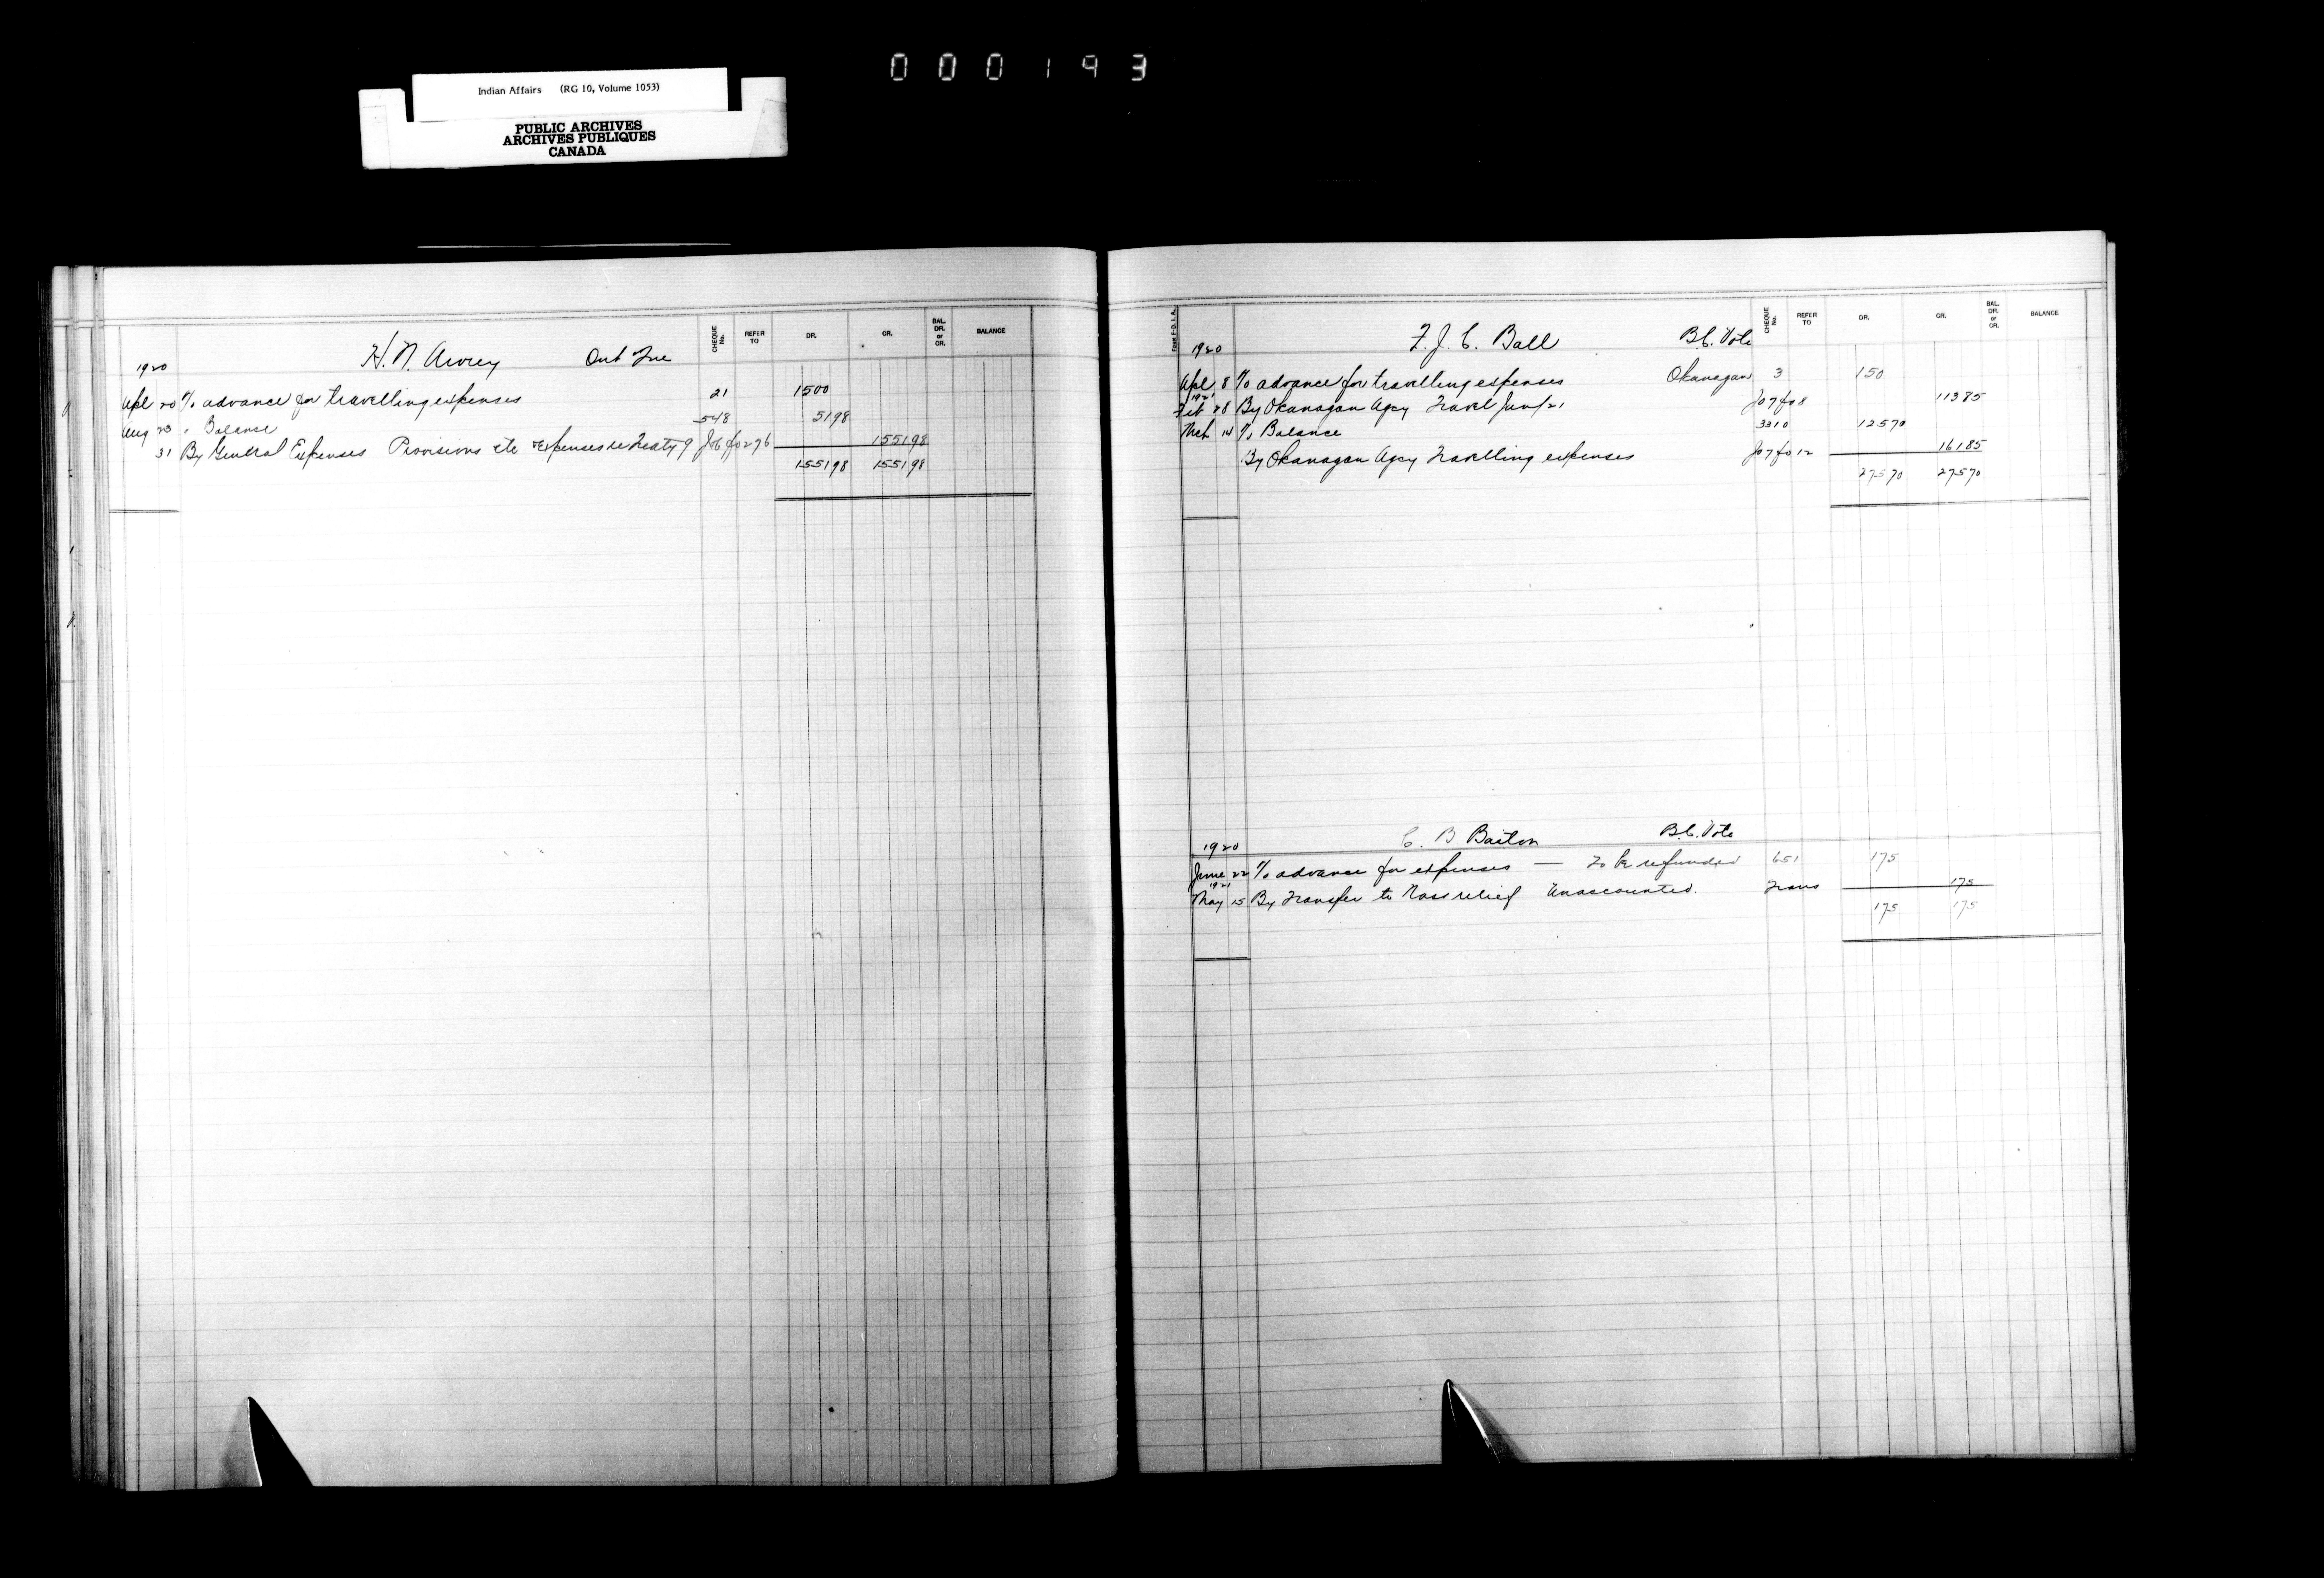 000193
Indian Affairs (RG 10, Volume 1053)
PUBLIC ARCHIVES
ARCHIVES PUBLIQUES
CANADA
CHEQUE No. REFER TO DR. CR. BAL. DR. or CR. BALANCE
1920 H. N. Awrey
Apl 20 % advance for travelling expenses 21 1500
Aug 23 " Balance 548 51 98
31 By General Expenses Provisions etc Expenses re Treaty 9 Jo 6 fo 276 1551 98
1551 98 1551 98
Form F-D. I. A.
CHEQUE No. REFER TO DR. CR. BAL. DR. or CR. BALANCE
1920 F. J. C. Ball B.C. Vote
Apl 8 % advance for travelling expenses Okanagan 3 150
1921
Feb 28 By Okanagan Agcy Travel Jan/21 Jo 7 fo 8 113 85
Mch 14 % Balance 3310 125 70
By Okanagan Agcy Travelling expenses Jo 7 fo 12 161 85
275 70 275 70
1920 C. B Barton B.C. Vote
June 22 % advance for expenses — To be refunded 651 175
1921
May 15 By Transfer to Nass relief Unaccounted. Trans 175
175 175